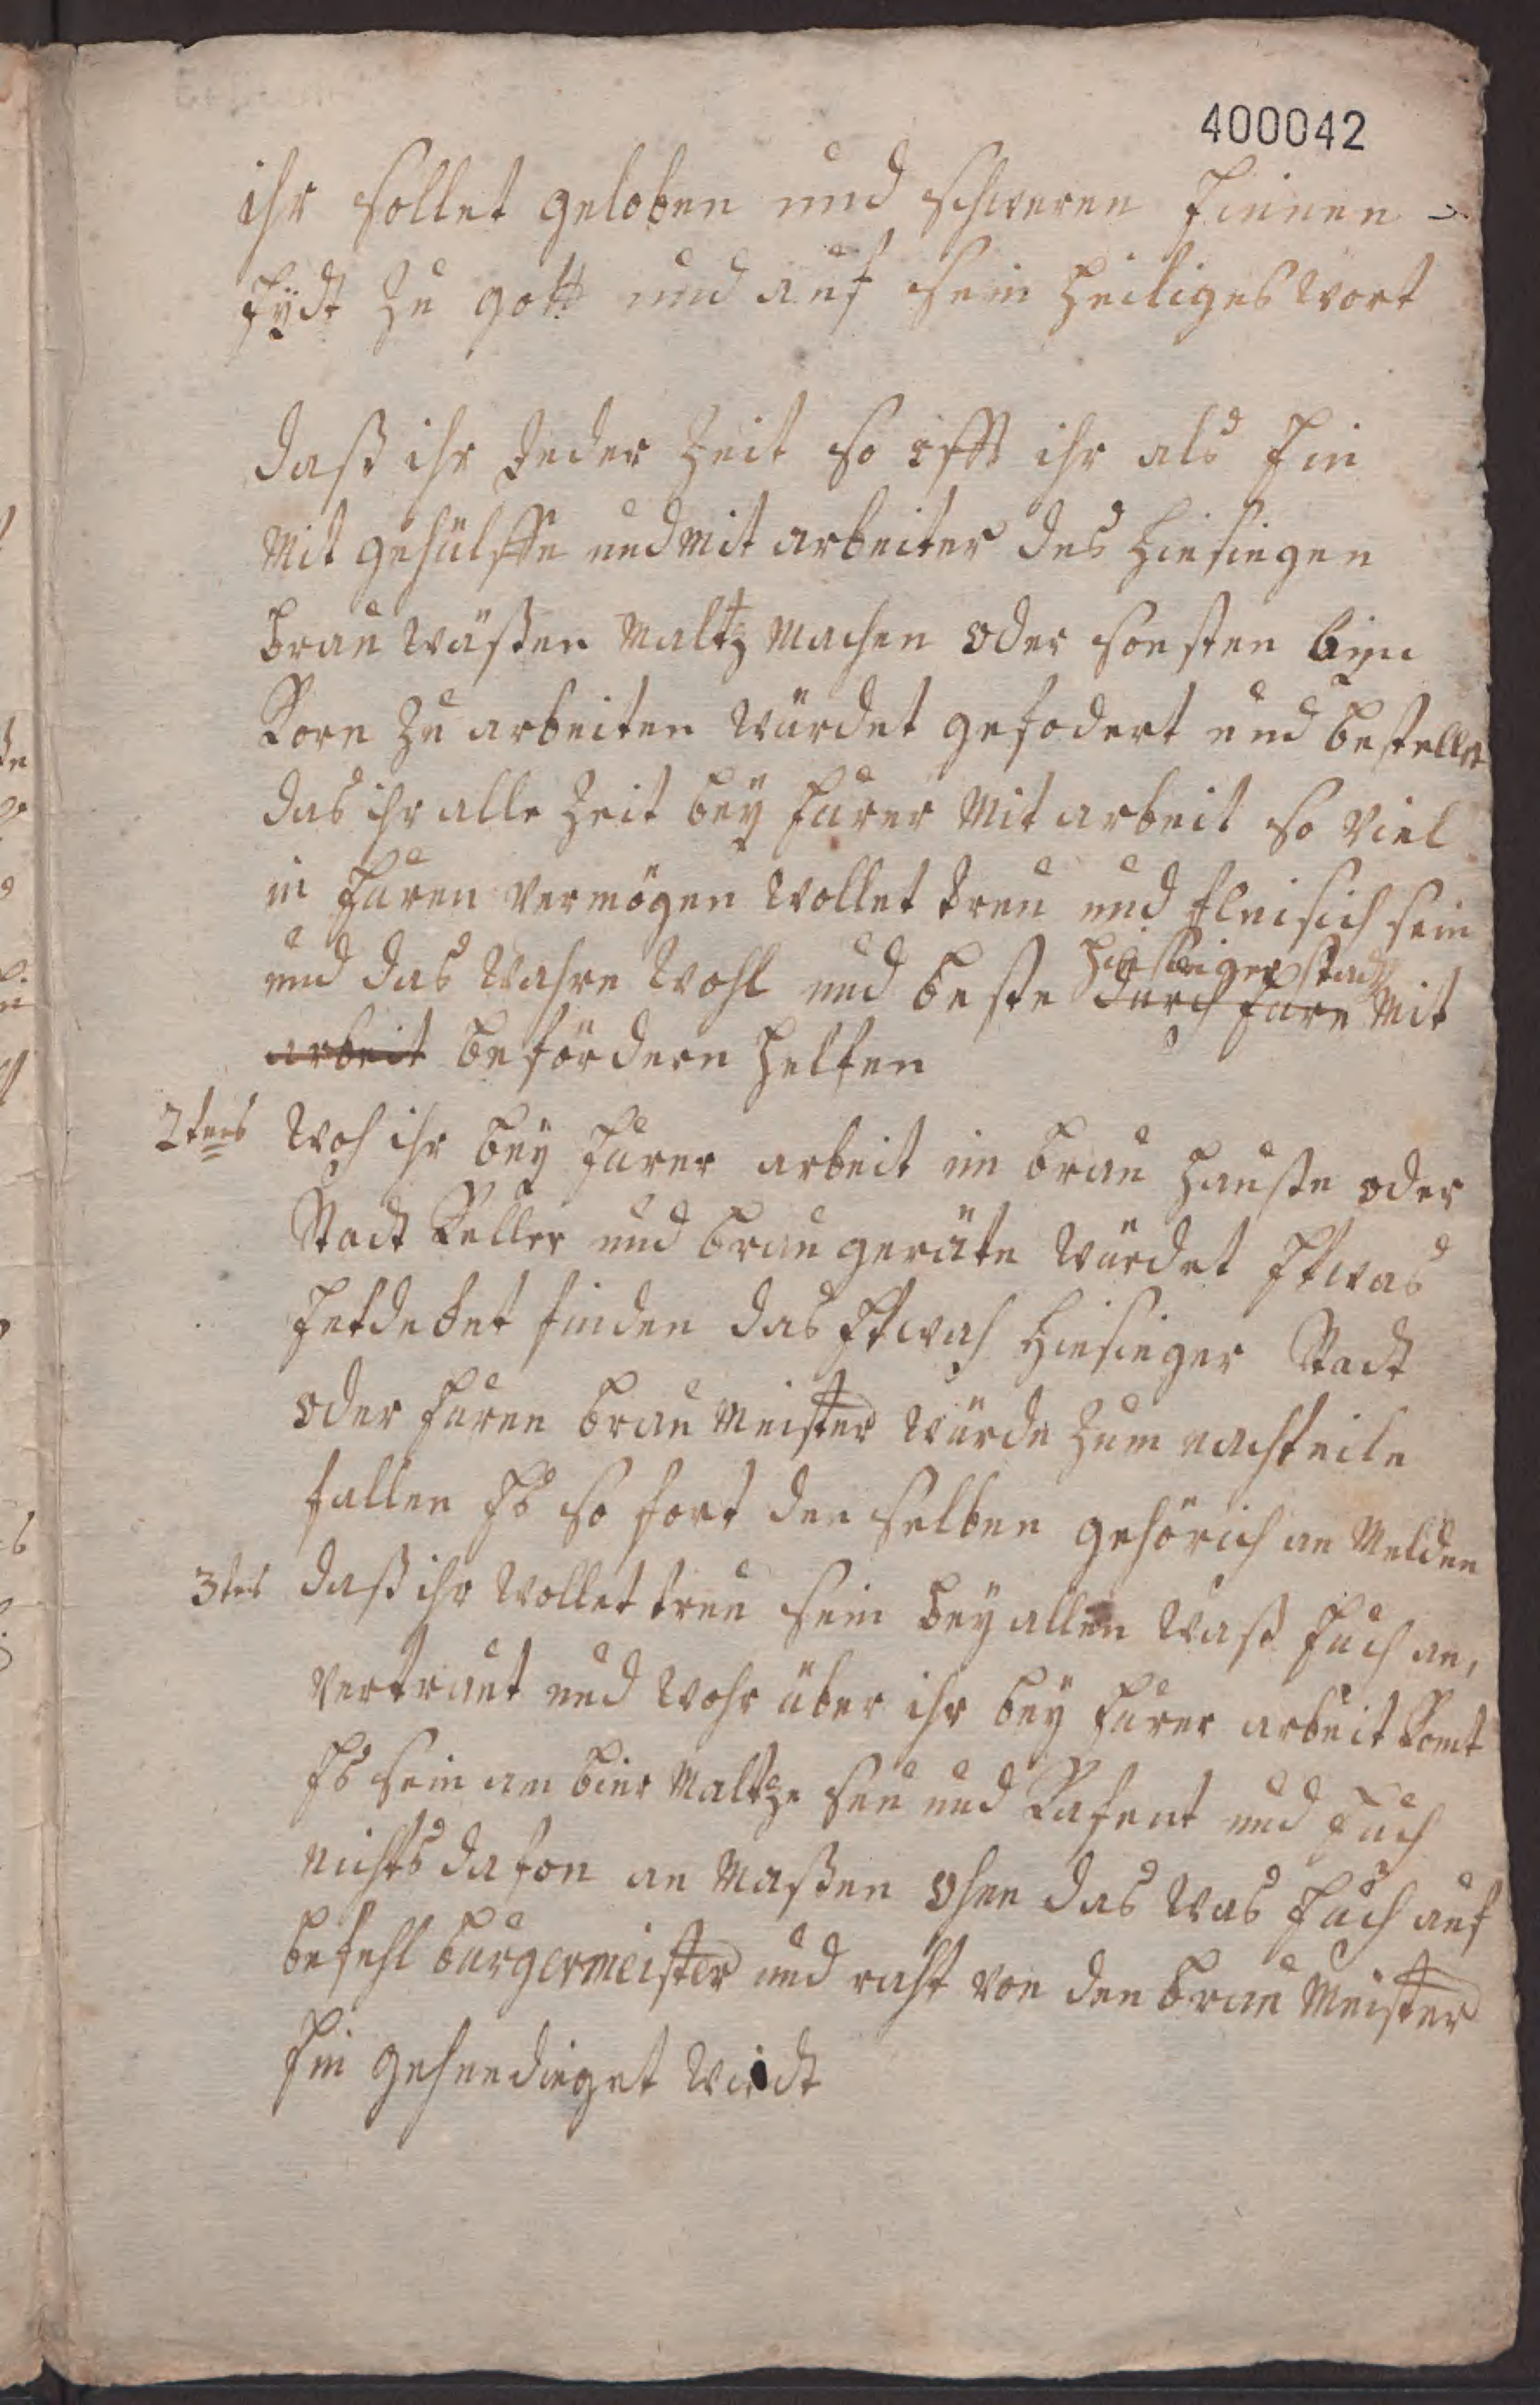 400042
ihr sollet geloben und schweren Einen
Eÿdt zu gott und auf sein heiliges Wort
daß ihr Jeder Zeit so offt ihr als Ein
Mit gehülffe und Mit arbeiter des hiesiegen
brau Wäßen Maltz Machen oder sonsten bein
Korn zu arbeiten Würdet gefodert und bestellet
das ihr alle Zeit beÿ Eurer Mit arbeit so Viel
in Euren Vermögen Wollet treu und fleisich sein
hiesieger stadt
und das Wahre Wohl und beste durch Eure Mit
arbeit befördern helfen
2tens Woh ihr beÿ Eurer arbeit im brau Hauße oder
Stadt Keller und brau geräte Würdet Etwas
Endecket finden das Etwas hiesieger Stadt
oder Euren brau Meister Würde zum nachteile
fallen Es so fort den selben gehörich an Melden
3tens daß ihr Wollet treu sein beÿ allen Waß Euch an,
Vertraut und Wohr über ihr beÿ Eurer arbeit Komt
Es sein an bier Maltze und Kafent und Euch
nichts dafon an Maßen ohne das Was Euch auf
befehl bürgermeister und raht von den brau Meister
Ein gehendieget Wirdt